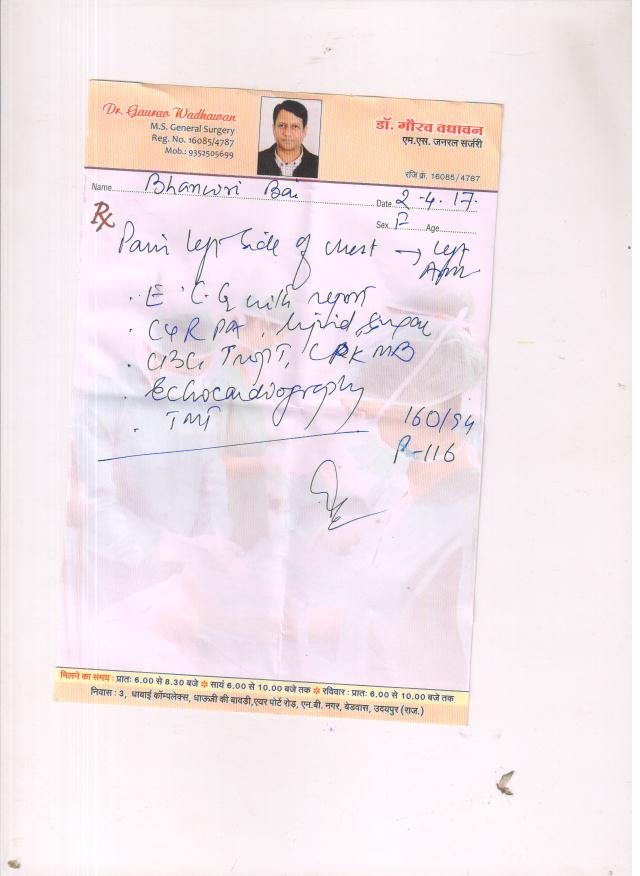 Dr. Gaurav Wadhawan
M.S. General Surgery
Reg. No. 16085/4787
Mob.: 9352505699
डॉ. गौरव वधावन
एम.एस. जनरल सर्जरी
रजि क्रं. 16085/4787
Name Bhanwri Bai
Date 2-4.17.
Sex F Age
Rx
Pain left side of chest → left
Arm
. E C G with report
. CXR PA, lipid, sugar
. CBC, TropT, CPK MB
. Echocardiography
. TMT
160/94
P-116
मिलने का समय : प्रातः 6.00 से 8.30 बजे ❋ सायं 6.00 से 10.00 बजे तक ❋ रविवार : प्रातः 6.00 से 10.00 बजे तक
निवास : 3, धाबाई कॉम्पलेक्स, धाऊजी की बावड़ी,एयर पोर्ट रोड़, एन.बी. नगर, बेडवास, उदयपुर (राज.)